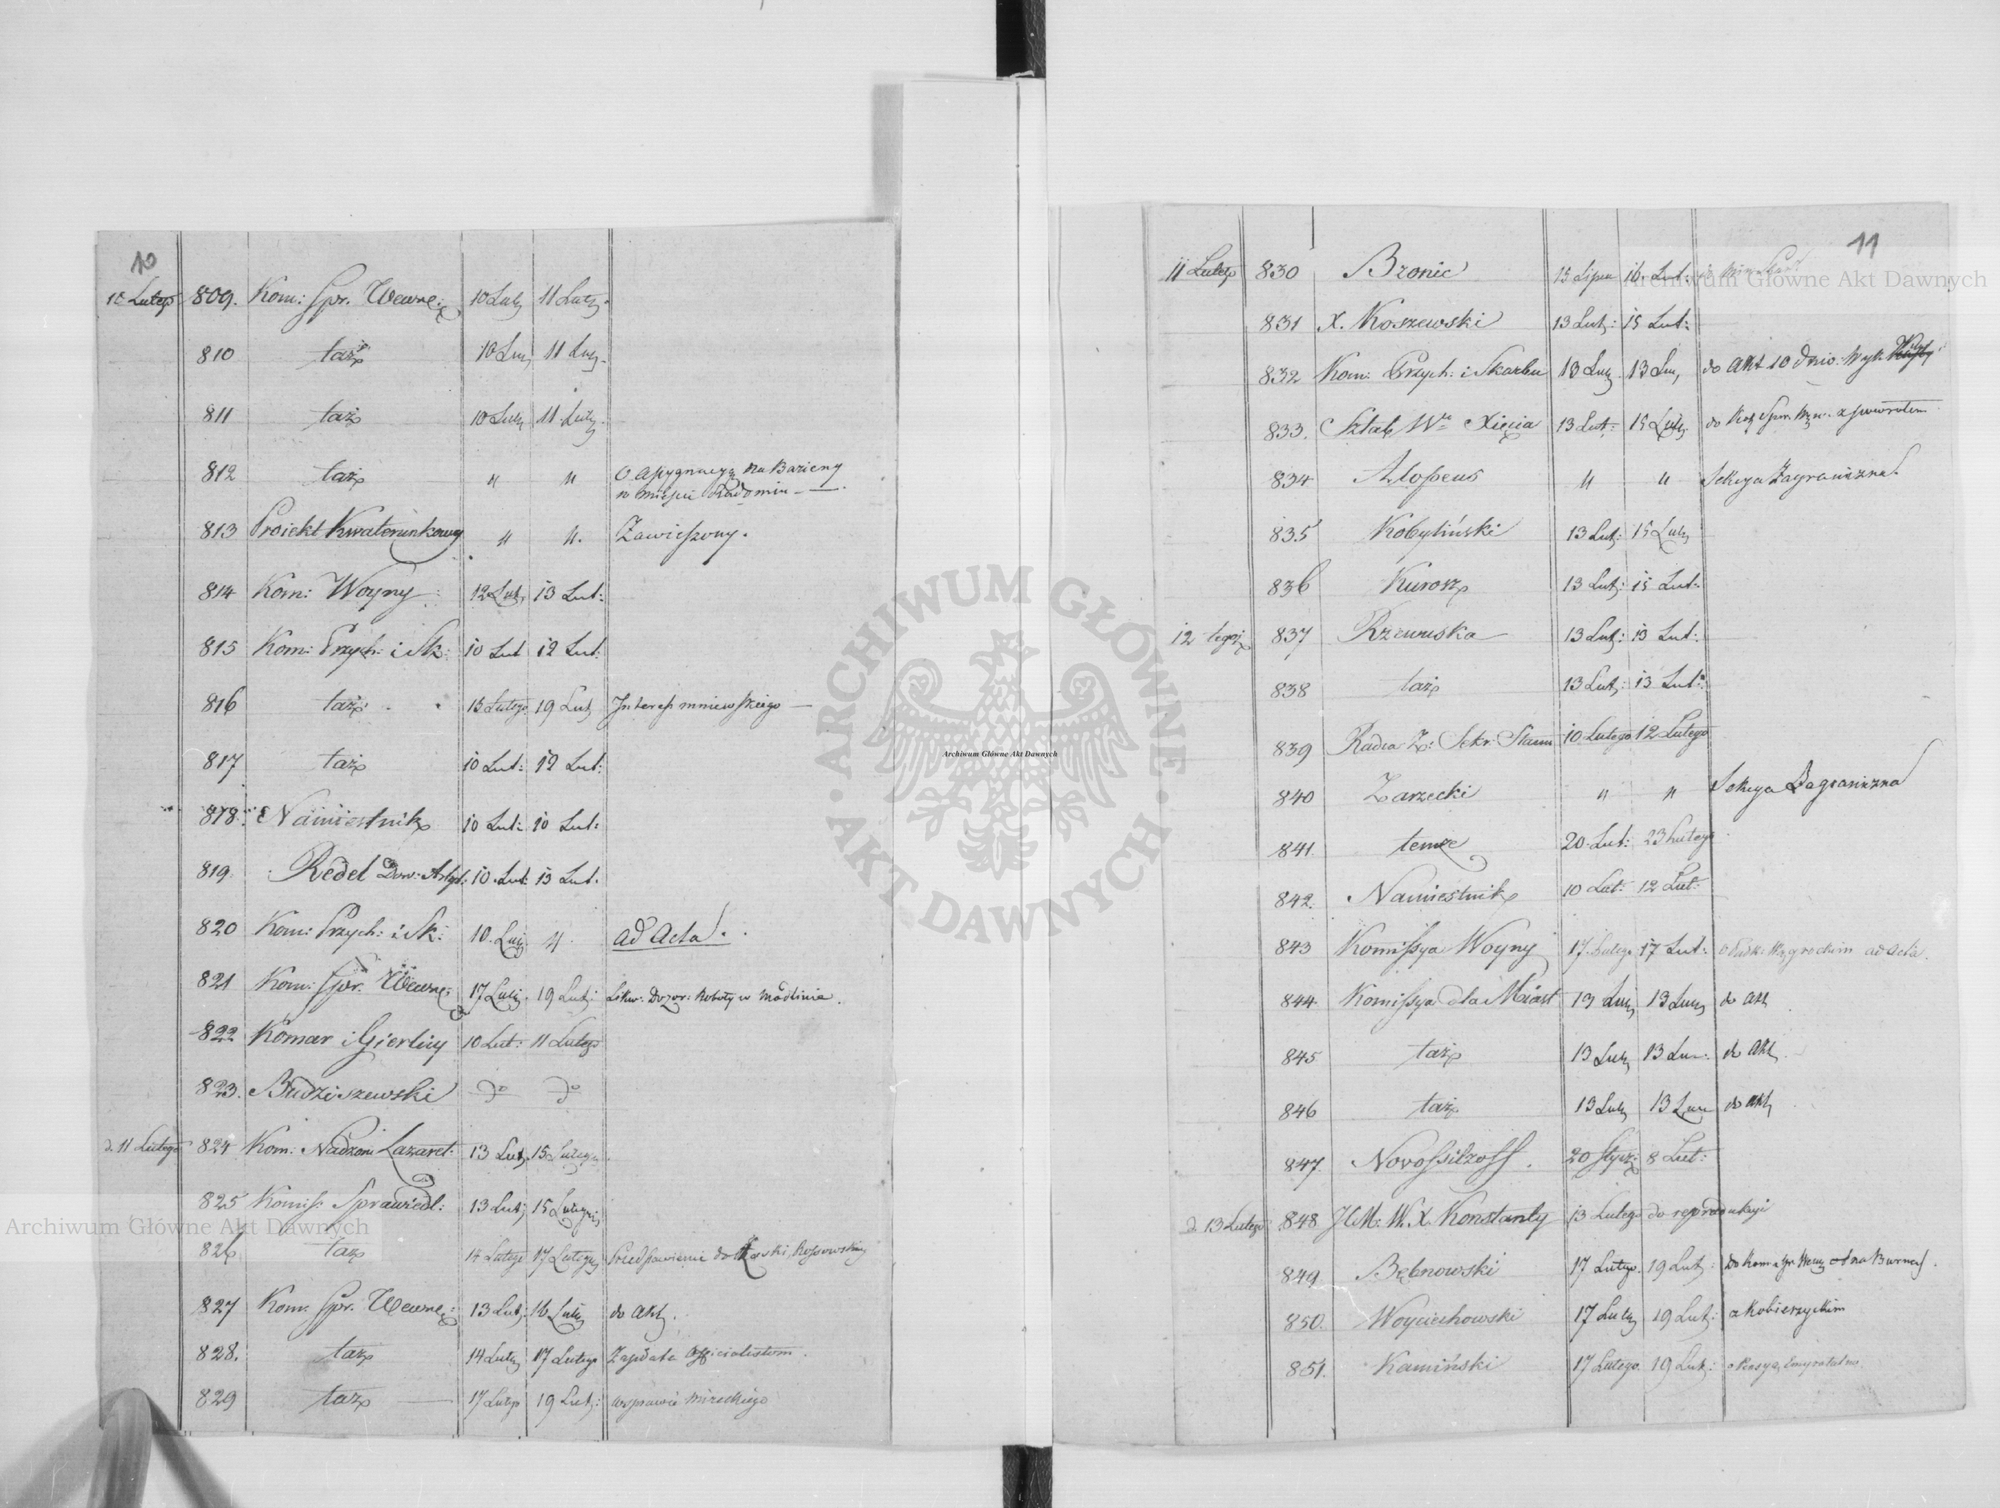 10
10 Lutego 809. Kom: Spr. Wewnę: 10 Lutg 11 Lutg.
810 taż 10 Lutg 11 Lutg.
811 taż 10 Lutg 11 Lutg.
812 taż " " O assygnacyą na Bazieny
w miescie Radomiu
813 Proiekt Kwaterunkowy " ". Zawieszony.
814 Kom: Woyny 12 Lutg 13 Lut:
815 Kom: Przych: i Sk: 10 Lut 12 Lut:
816 taż 15 Lutego 19 Lutg Interess mniewskiego
817 taż 10 Lut: 12 Lut:
818 Namiestnik 10 Lut: 10 Lut:
819. Redel Dow: Artyl: 10. Lut: 13 Lut.
820 Kom: Przych: i Sk: 10. Lutg " ad Acta.
821 Kom: Spr. Wewnę: 17 Lutg. 19 Lutg: Likw: Dozor: Roboty w Modlinie.
822 Komar i Gierlicy 10 Lut: 11 Lutego
823. Budziszewski do do
d. 11 Lutego 824 Kom: Nadzoru Lazaret: 13 Lutg. 15 Lutego
825 Komiss: Sprawiedl: 13 Lutg 15 Lutego
826 taż 14 Lutego 17 Lutego
827 Kom: Spr. Wewnę: 13 Lutg: 16 Lutg do Akt.
828. taż 14 Lutg 17 Lutego Zapłata Officialistom.
829 taż 17 Lutg 19 Lutg: w sprawie Mireckiego
11
11 Lutego 830 Bronic 15 Lipca 16 Lut:
831 X. Koszewski 13 Lutg: 15 Lut:
832 Kom: Przych: i Skarbu 13 Lutg 13 Lutg do Akt 10 dnio. Wyk:
833. Sztab Wo Xięcia 13 Lut: 15 Lutg. do Kom Spr. Wew. z powrotem
834 Alopeus " " Sekcya Zagraniczna
835 Kobyliński 13 Lut: 15 Lutg
836 Kurosz 13 Lutg: 15 Lut:
12 tegoż 837 Rzewuska 13 Lutg: 13 Lut:
838 taż 13 Lutg: 13 Lut:
839 Radca Z: Sekr: Stanu 10 Lutego 12 Lutego
840 Zarzecki " " Sekcya Zagraniczna
841. temże 20. Lut: 23 Lutego
842. Namiestnik 10 Lut: 12 Lut:
843 Komissya Woyny 17. Lutego 17 Lut: ad acta.
844. Komissya dla Miast 13 Lutg 13 Lutg do Akt
845 taż 13 Lutg 13 Lut: do Akt
846 taż 13 Lutg 13 Lut do Akt
847. Novossilzoff. 20 Stycz: 8 Lut:
d 13 Lutego 848 JCM: W. X. Konstanty 13 Lutego do reprodukcyi
849 Bębnowski 17 Lutego. 19 Lutg:
850. Woyciechowski 17 Lutg 19 Lutg: z Kobierzyckim
851. Kamiński 17 Lutego. 19 Lutg:
Archiwum Główne Akt Dawnych
Archiwum Główne Akt Dawnych
Archiwum Główne Akt Dawnych
ARCHIWUM GŁÓWNE
AKT DAWNYCH